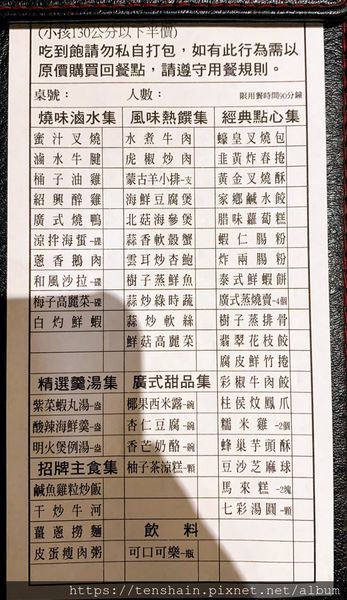 (小孩130公分以下半價)
吃到飽請勿私自打包，如有此行為需以
原價購買回餐點，請遵守用餐規則。
桌號： 人數： 限用餐時間90分鐘
燒味滷水集 風味熱饌集 經典點心集
蜜汁叉燒 水煮牛肉 蠔皇叉燒包
滷水牛腱 虎椒炒肉 韭黃炸春捲
桶子油雞 蒙古羊小排-支 黃金叉燒酥
紹興醉雞 海鮮豆腐煲 家鄉鹹水餃
廣式燒鴨 北菇海參煲 腊味蘿蔔糕
涼拌海蜇-碟 蒜香軟殼蟹 蝦仁腸粉
蔥香鵝肉 雲耳炒杏鮑 炸兩腸粉
和風沙拉-碟 樹子蒸鮮魚 泰式鮮蝦餅
梅子高麗菜-碟 蒜炒綠時蔬 廣式蒸燒賣-4個
白灼鮮蝦 蒜炒軟絲 樹子蒸排骨
鮮菇高麗菜 翡翠花枝餃
腐皮鮮竹捲
精選羹湯集 廣式甜品集 彩椒牛肉餃
紫菜蝦丸湯-盅 椰果西米露-碗 柱侯炆鳳爪
酸辣海鮮羹-盅 杏仁豆腐-碗 糯米雞-2個
明火煲例湯-盅 香芒奶酪-碗 蜂巢芋頭酥
招牌主食集 柚子茶涼糕-顆 豆沙芝麻球
鹹魚雞粒炒飯 馬來糕-2塊
干炒牛河 七彩湯圓-顆
薑蔥撈麵 飲料
皮蛋瘦肉粥 可口可樂-瓶
https://tenshain.pixnet.net/album